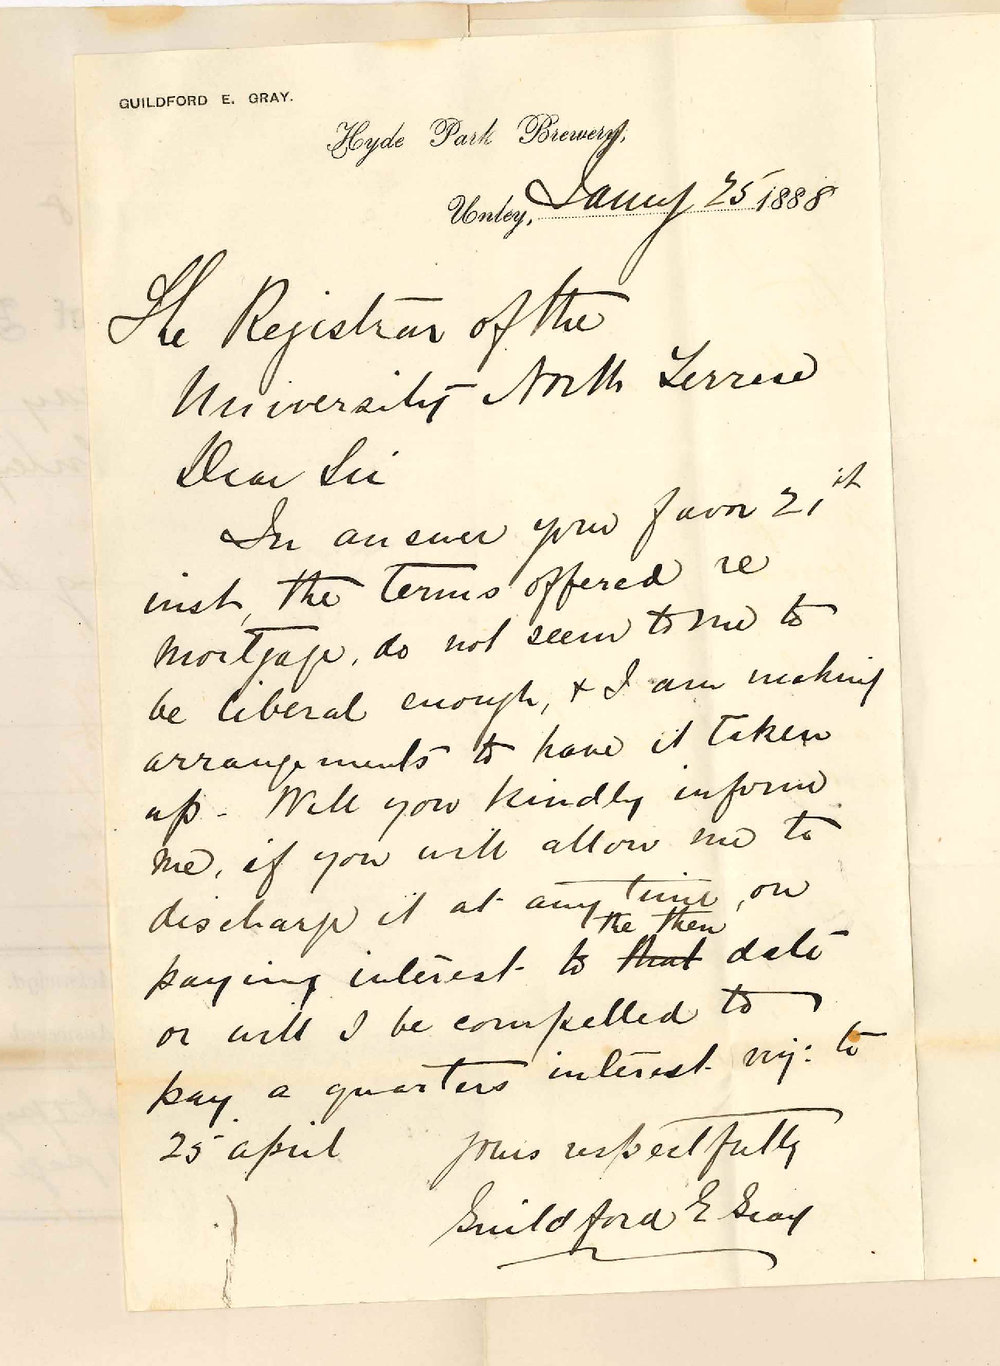 GUILDFORD E. GRAY.
Hyde Park Brewery,
Unley, Jany 25 1888
The Registrar of the
University North Terrace
Dear Sir
In answer your favor 21st
inst, the terms offered re
mortgage, do not seem to me to
be liberal enough, & I am making
arrangements to have it taken
up - Will you kindly inform
me, if you will allow me to
discharge it at any time, on
the then
paying interest to that date
or will I be compelled to
pay a quarters interest viz: to
25 april yours respectfully
Guildford E Gray